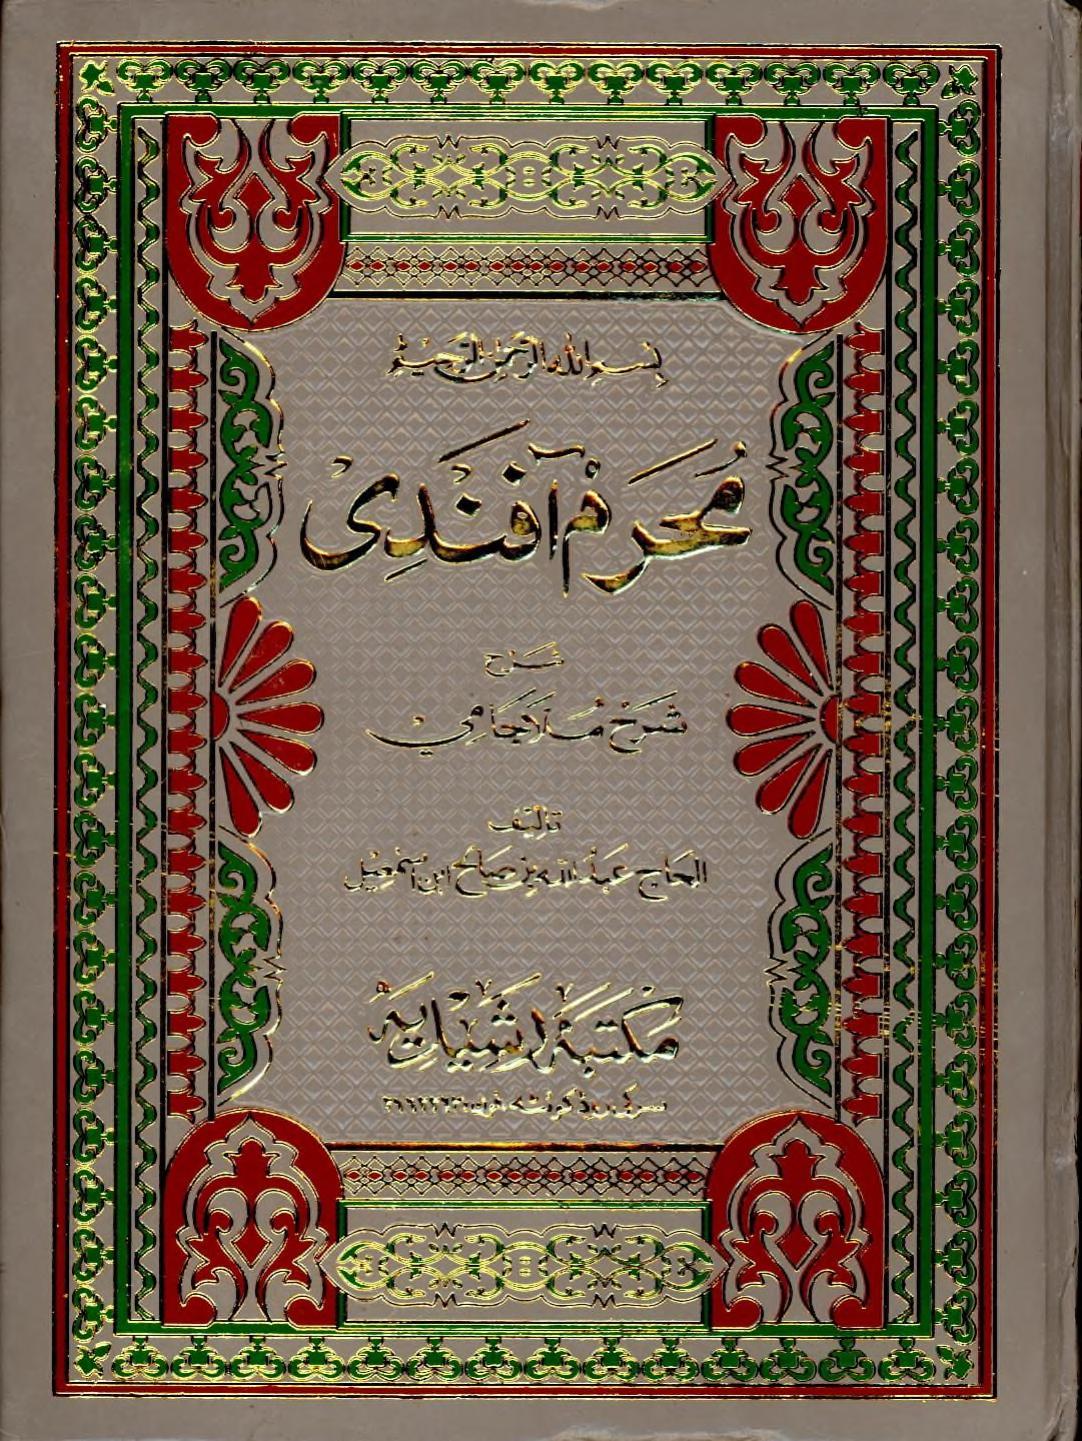 بسم الله الرحمن الرحيم
مُحَرَّمْ آفَنَدِى
شرح
شَرَحْ مُلَّا جَامِيْ
تاليف
الحاج عبدالله بن صالح ابن اسمعيل
مكتبة رشيديه
سركى رود كوئته فون